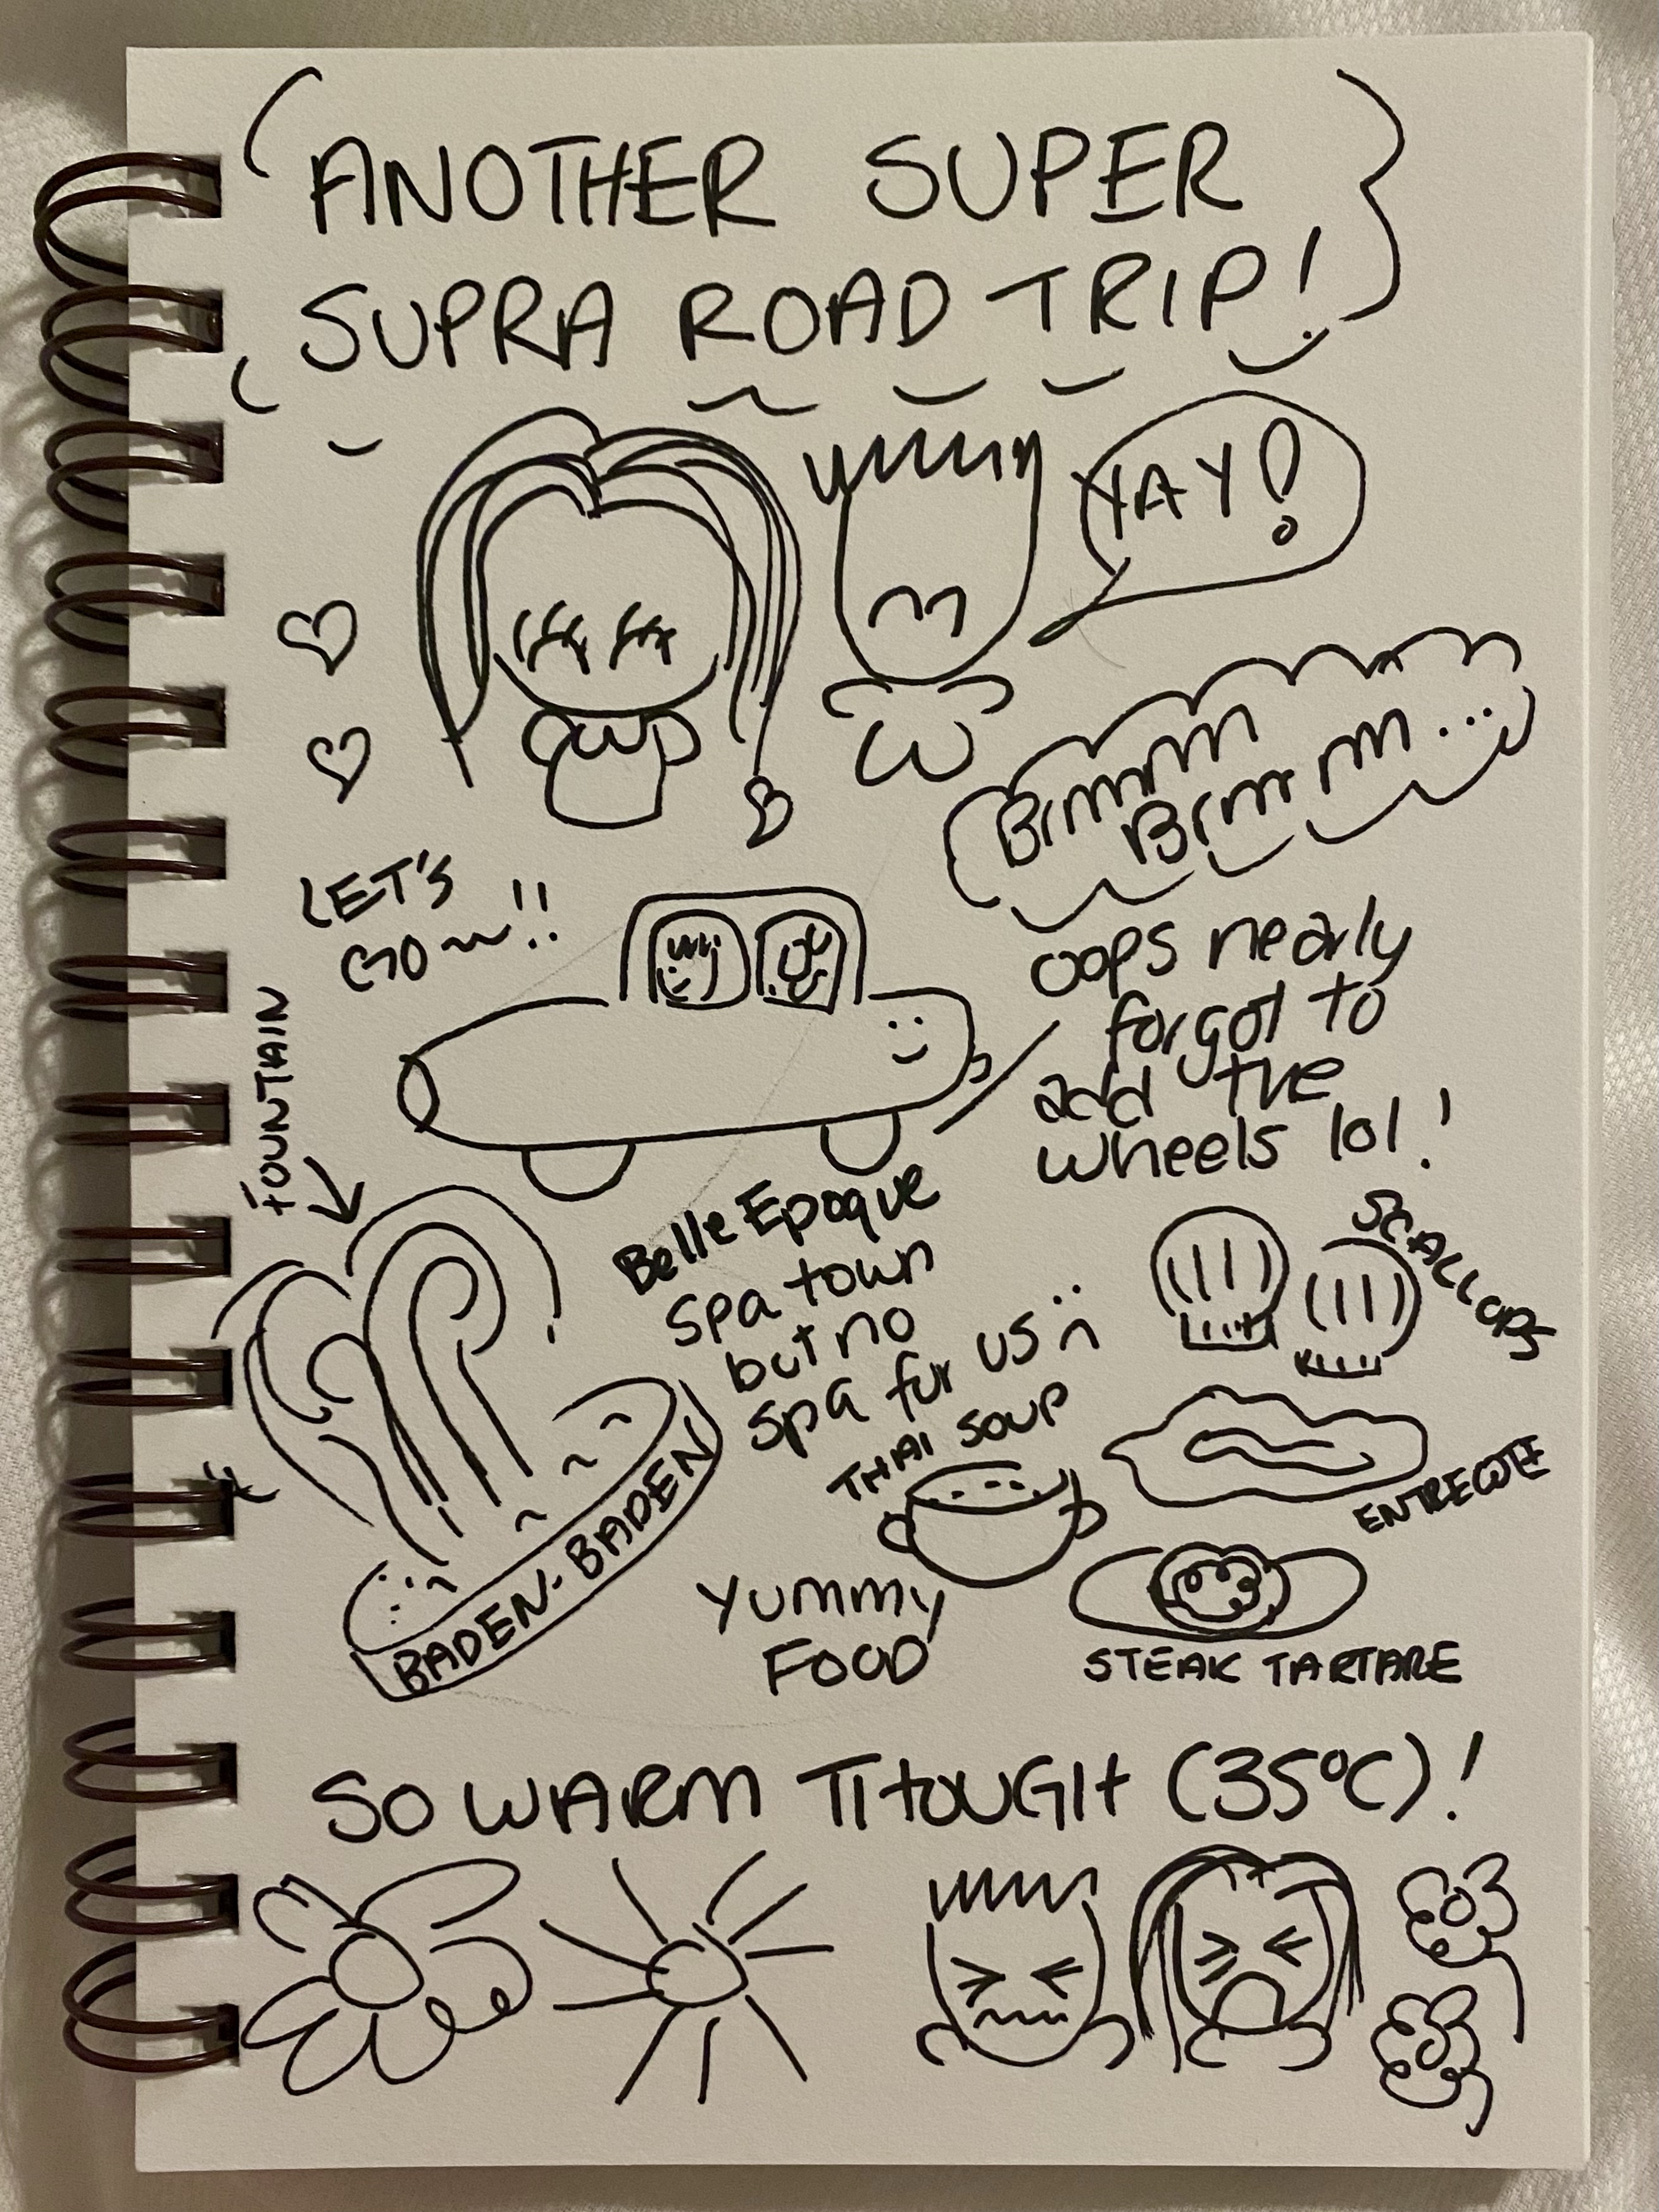 ANOTHER SUPER
SUPRA ROAD TRIP!
YAY!
Brmmm
Brmmmm...
LET'S
GO~!!
oops nearly
forgot to
add the
wheels lol!
FOUNTAIN
Belle Epoque
spa town
but no
spa for us :(
SCALLOPS
THAI SOUP
ENTRECOTE
BADEN-BADEN
YUMMY
FOOD
STEAK TARTARE
SO WARM THOUGH (35°C)!